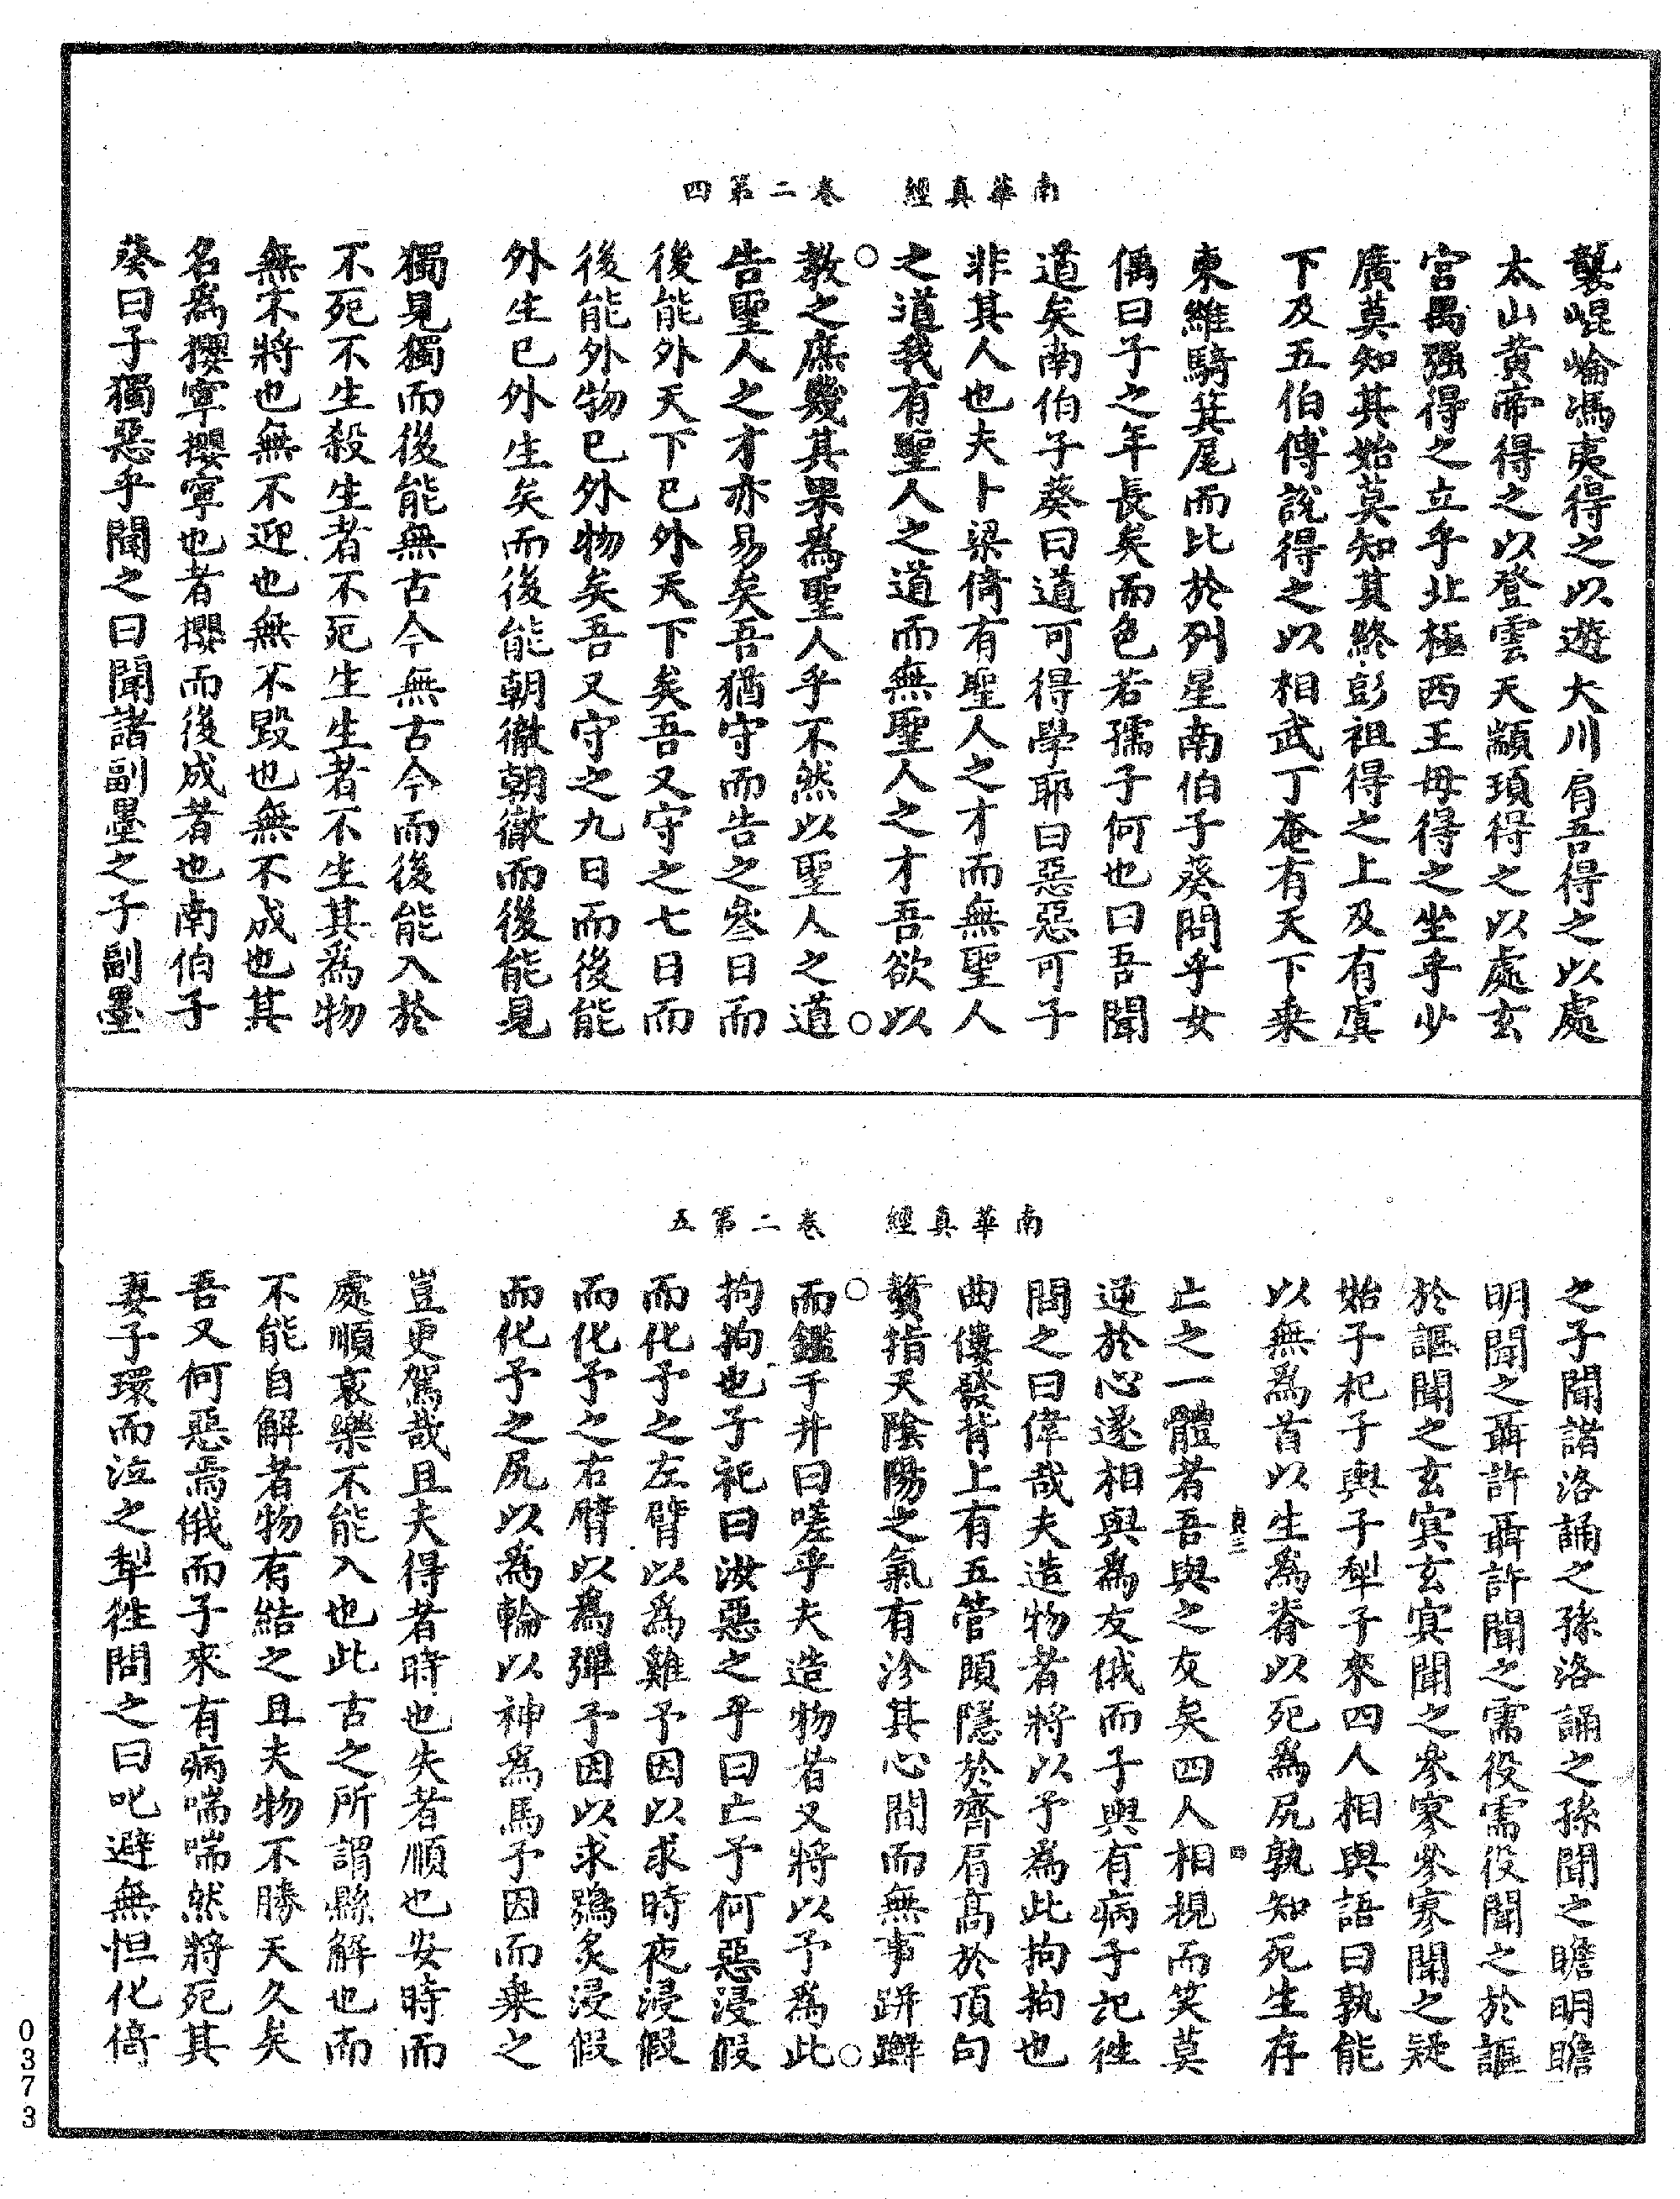 南華真經　卷二第四
襲崐崘馮夷得之以遊大川肩吾得之以處
太山黄帝得之以登雲天顓頊得之以處玄
宫禺强得之立乎北極西王母得之坐乎少
廣莫知其始莫知其終彭祖得之上及有虞
下及五伯傅說得之以相武丁奄有天下乗
東維騎箕尾而比於列星南伯子葵問乎女
偊曰子之年長矣而色若孺子何也曰吾聞
道矣南伯子葵曰道可得學耶曰惡惡可子
非其人也夫卜梁倚有聖人之才而無聖人
之道我有聖人之道而無聖人之才吾欲以
教之庶幾其果爲聖人乎不然以聖人之道
告聖人之才亦易矣吾猶守而告之叄日而
後能外天下已外天下矣吾又守之七日而
後能外物已外物矣吾又守之九日而後能
外生已外生矣而後能朝徹朝徹而後能見
獨見獨而後能無古今無古今而後能入於
不死不生殺生者不死生生者不生其爲物
無不將也無不迎也無不毀也無不成也其
名爲攖寧攖寧也者攖而後成者也南伯子
葵曰子獨惡乎聞之曰聞諸副墨之子副墨
南華真經　卷二第五
之子聞諸洛誦之孫洛誦之孫聞之瞻明瞻
明聞之聶許聶許聞之需役需役聞之於謳
於謳聞之玄冥玄冥聞之參寥參寥聞之疑
始子杞子輿子犁子來四人相與語曰孰能
以無爲首以生爲脊以死爲尻孰知死生存
亡之一體者吾與之友矣四人相視而笑莫
逆於心遂相與爲友俄而子輿有病子祀往
問之曰偉哉夫造物者將以予爲此拘拘也
曲僂發背上有五管頤隱於齊肩髙於頂句
贅指天陰陽之氣有沴其心間而無事跰𨇤
而鑑于井曰嗟乎夫造物者又將以予爲此
拘拘也子祀曰汝惡之乎曰亡予何惡浸假
而化予之左臂以爲雞予因以求時夜浸假
而化予之右臂以爲彈予因以求鴞炙浸假
而化予之尻以爲輪以神爲馬予因而乗之
豈更駕哉且夫得者時也失者順也安時而
處順哀樂不能入也此古之所謂縣解也而
不能自解者物有結之且夫物不勝天久矣
吾又何惡焉俄而子來有病喘喘然將死其
妻子環而泣之犁往問之曰叱避無怛化倚
0373